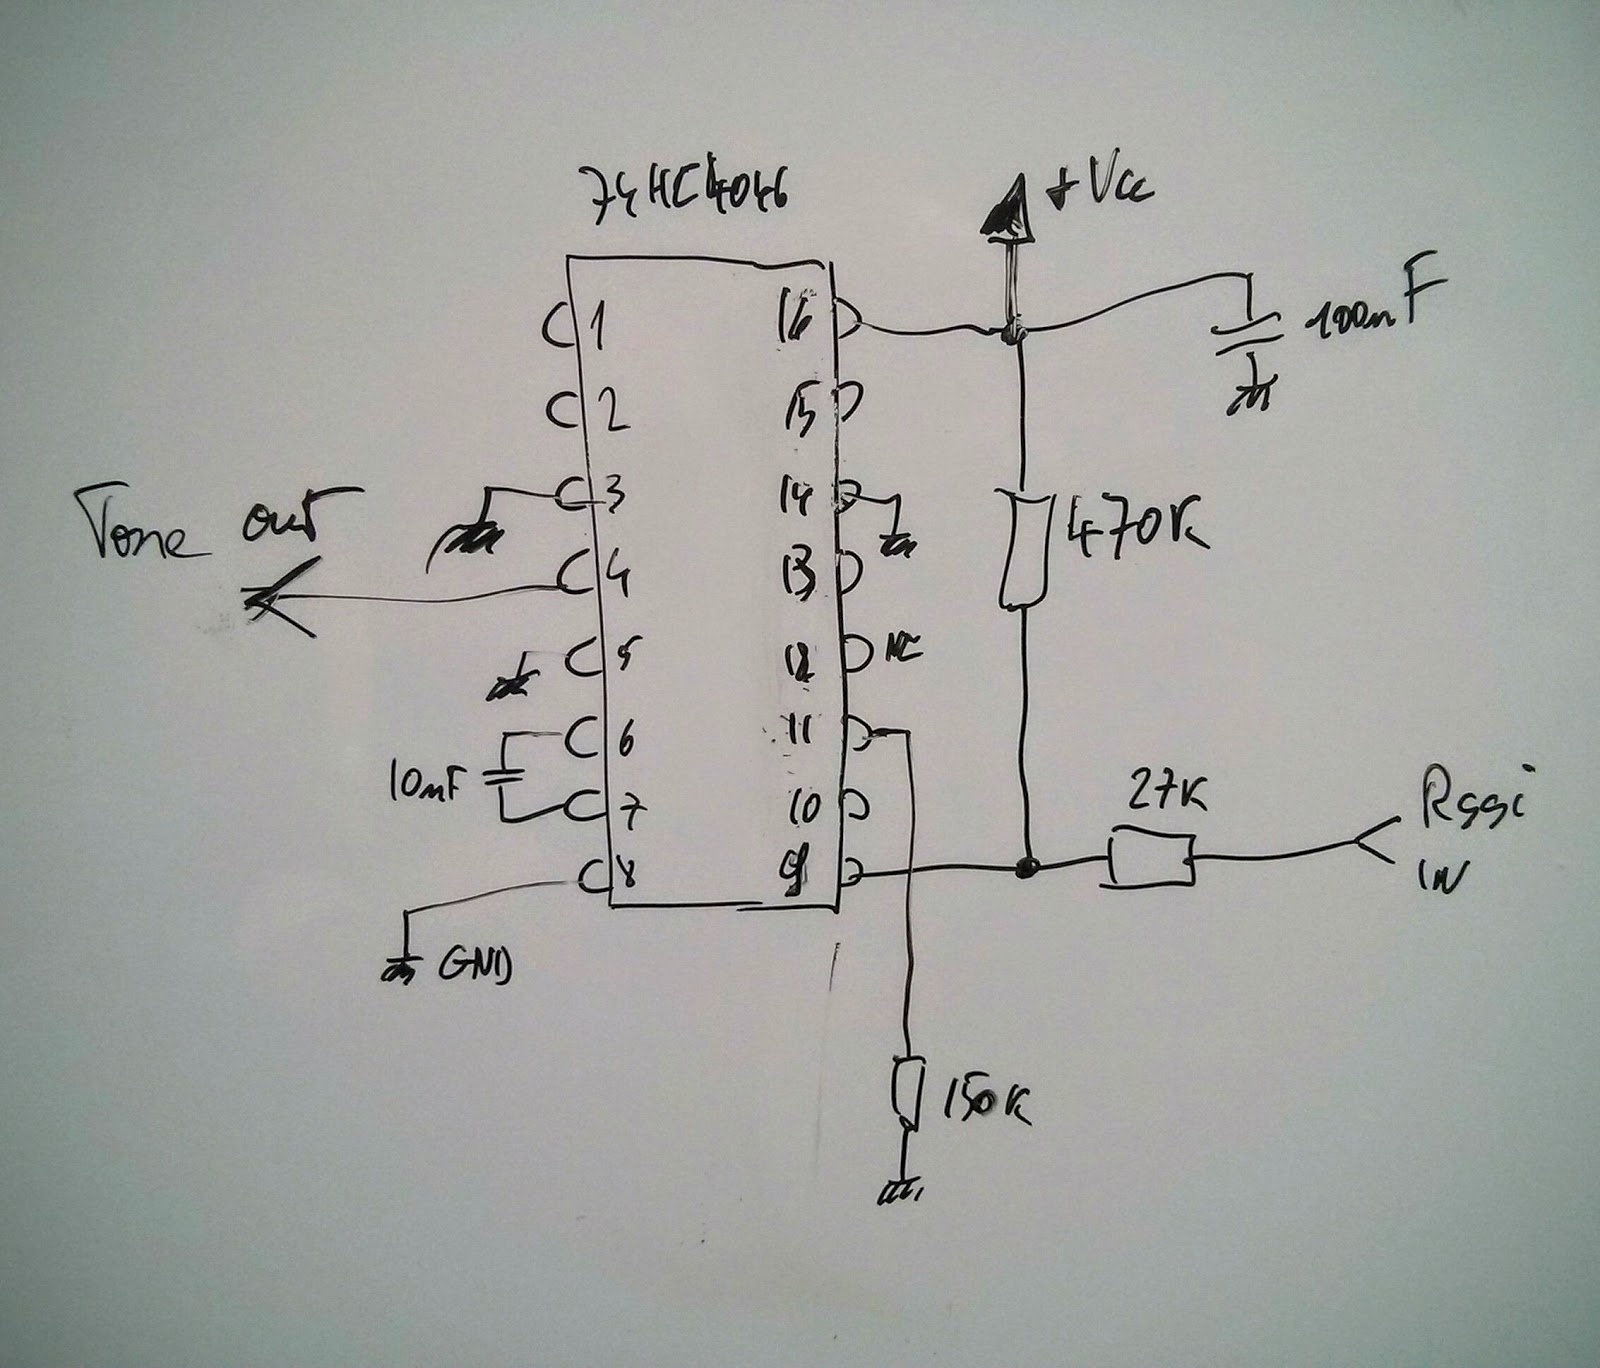 74HC4046
+Vcc
100nF
1
16
2
15
3
14
470K
Tone out
4
13
5
12
NC
6
11
10nF
7
10
27K
Rssi
IN
8
9
GND
150K